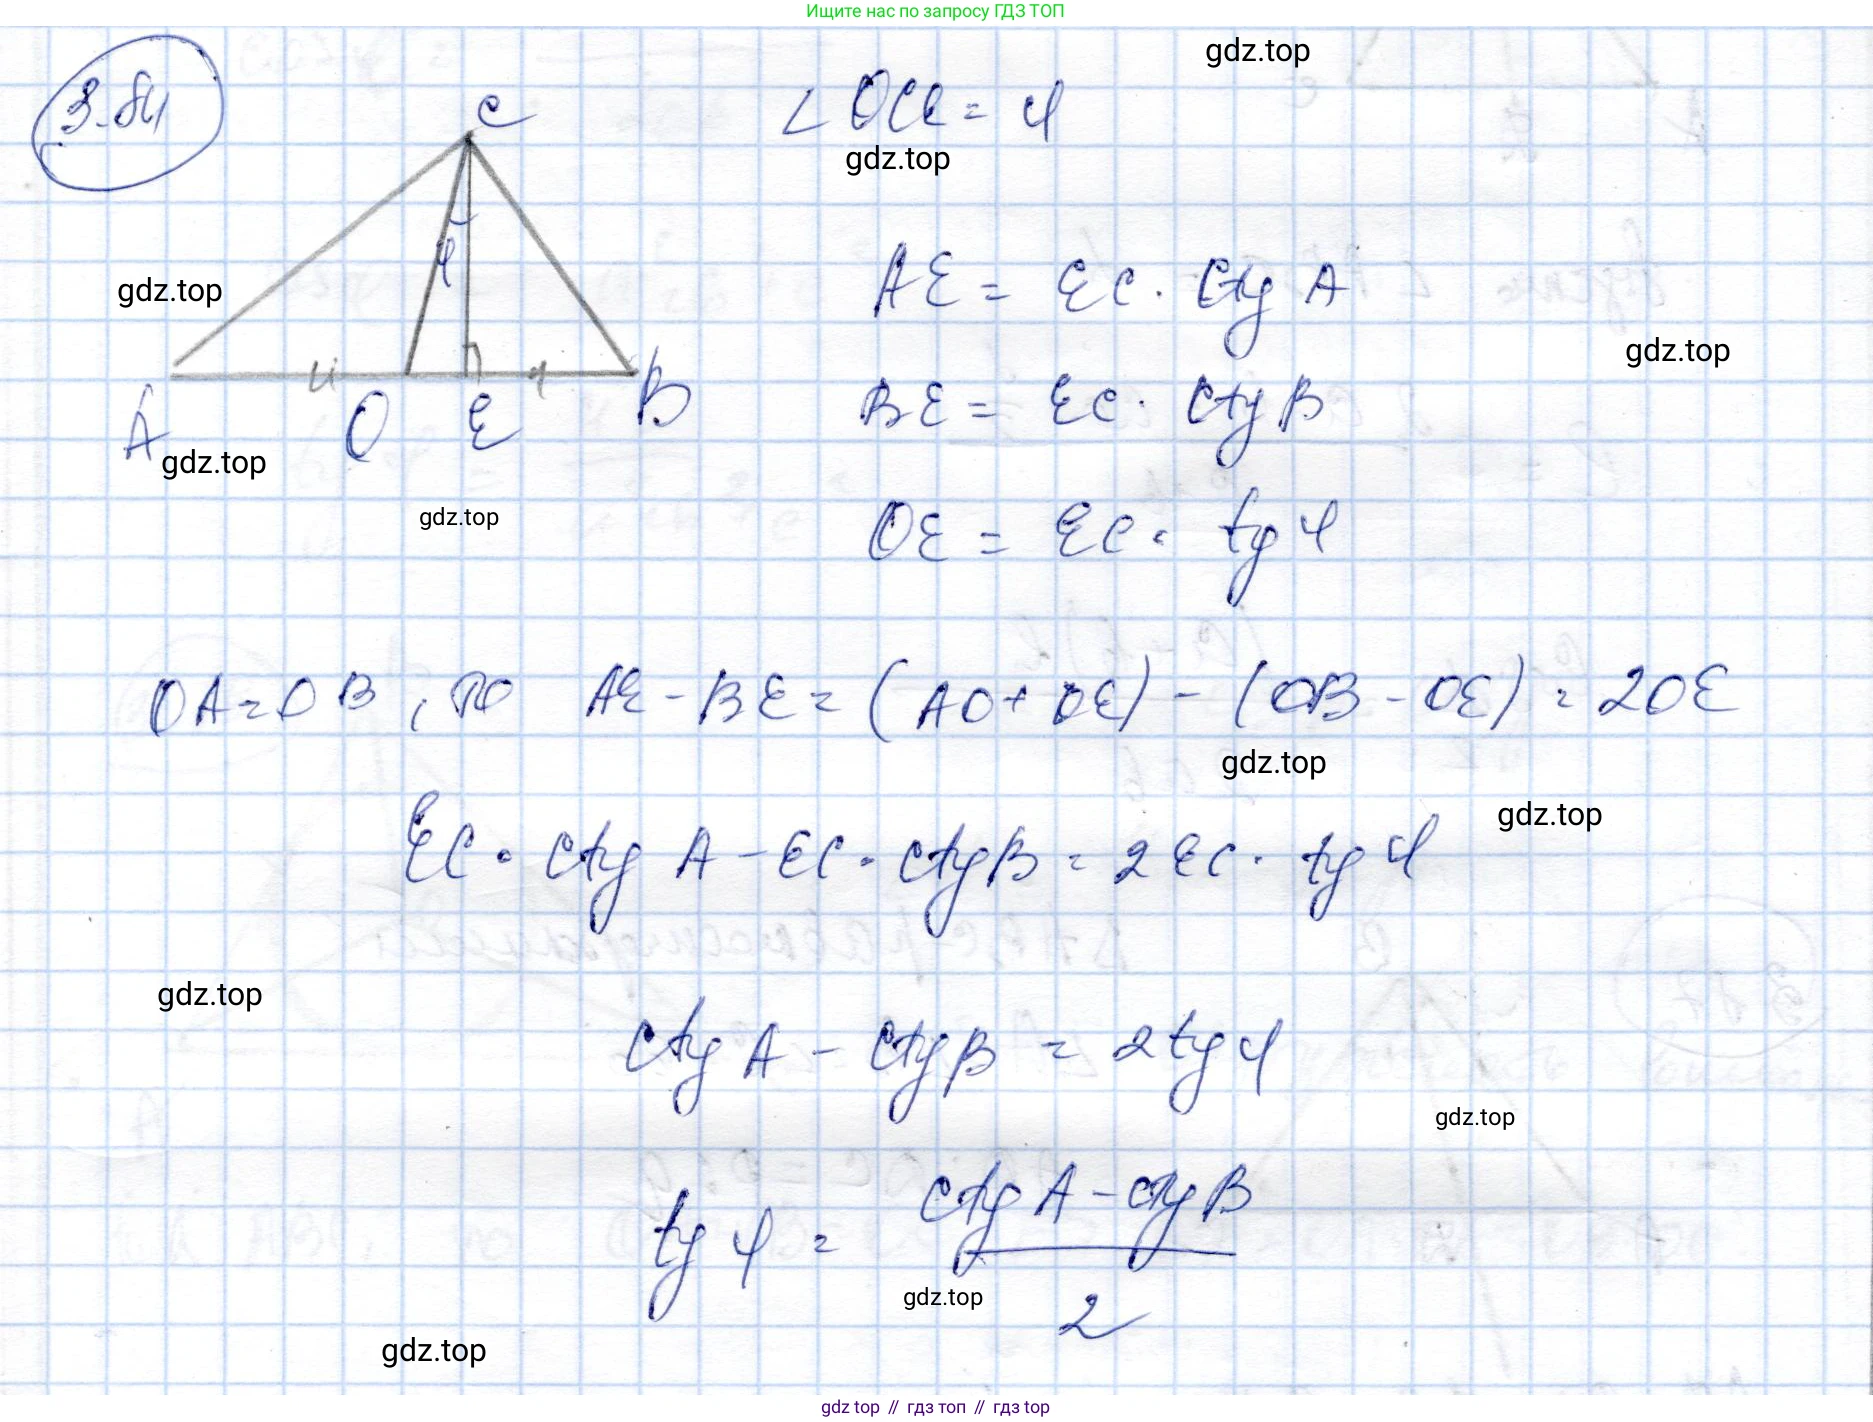 Ищите нас по запросу ГДЗ ТОП
gdz.top
3.84
C
∠ OCE = φ
gdz.top
φ
AE = EC · ctg A
gdz.top
gdz.top
A O E B
BE = EC · ctg B
gdz.top
gdz.top
OE = EC · tg φ
OA = OB, то AE - BE = (AO + OE) - (OB - OE) = 2OE
gdz.top
gdz.top
EC · ctg A - EC · ctg B = 2 EC · tg φ
gdz.top
ctg A - ctg B = 2 tg φ
gdz.top
tg φ = ctg A - ctg B
2
gdz.top
gdz.top
gdz.top // гдз топ // гдз top